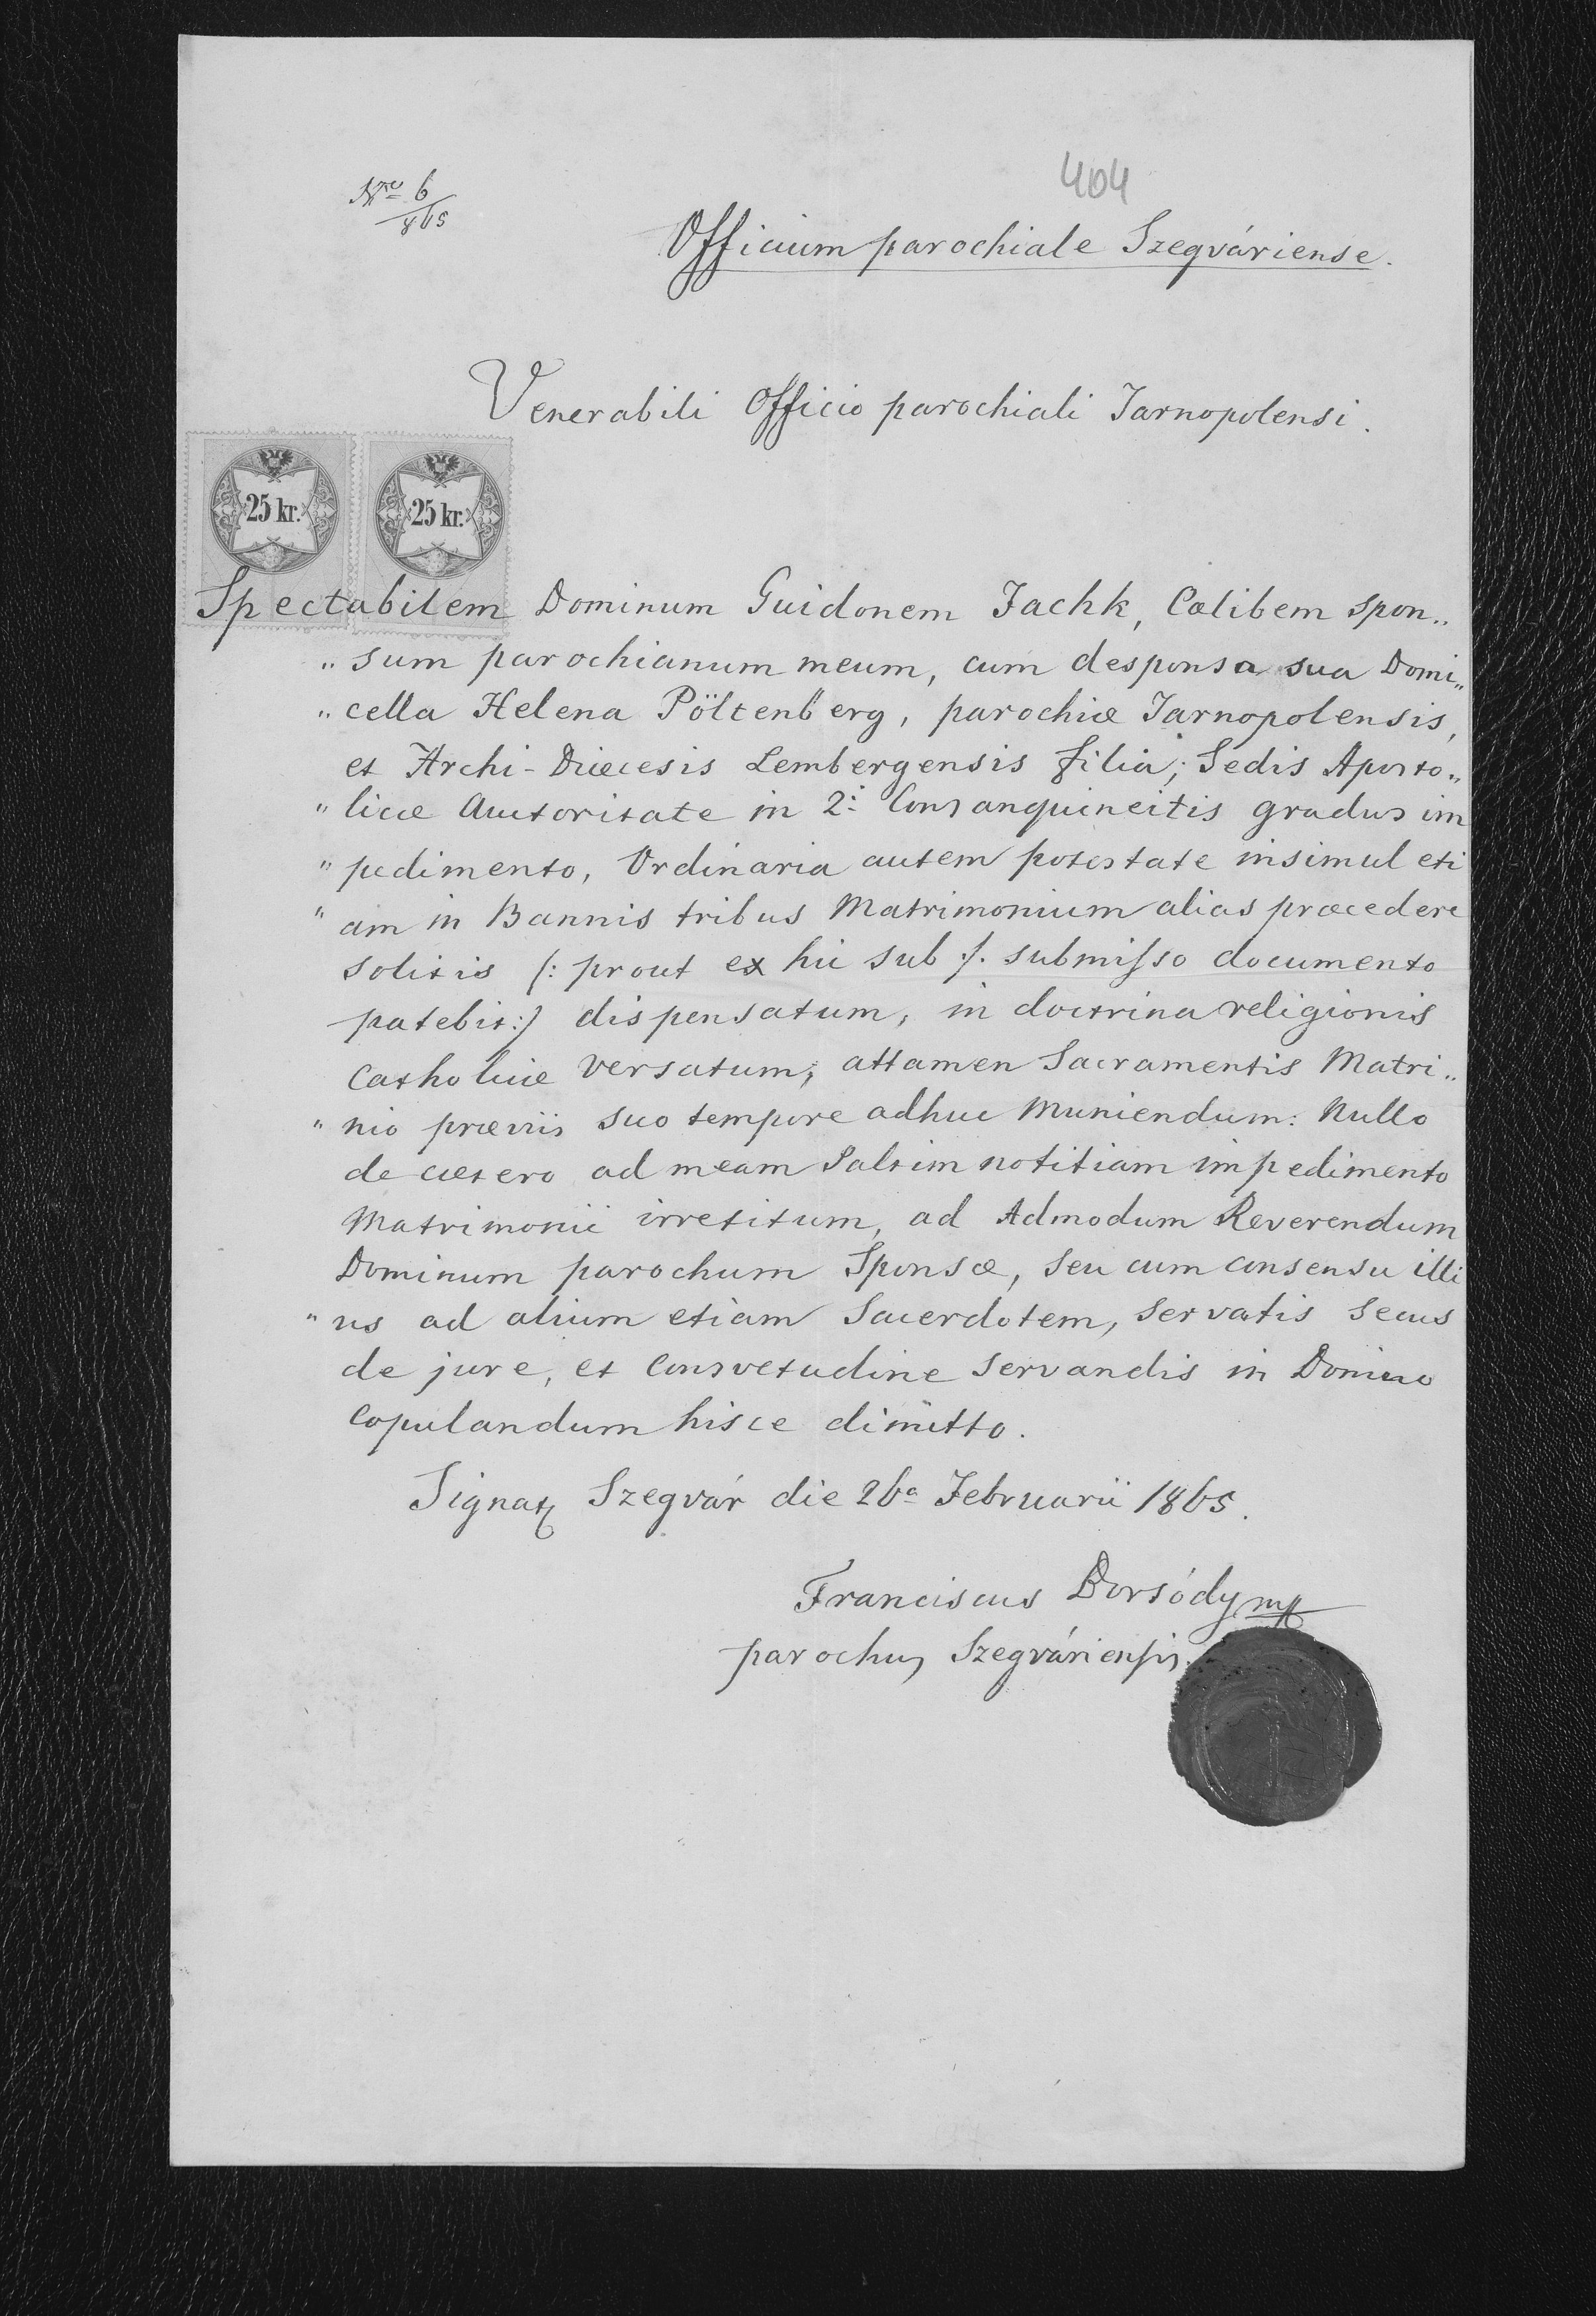 404
Nro 6/865
Officium parochiale Szegváriense.
Venerabili Officio parochiali Tarnopolensi.
25 kr. 25 kr.
Spectabilem Dominum Guidonem Jachk, Cælibem spon„
„sum parochianum meum, cum desponsa sua Domi„
„cella Helena Pöltenberg, parochiæ Tarnopolensis,
et Archi-Diœcesis Lembergensis filia; Sedis Aposto„
„licæ Auctoritate in 2i Consanquineitis gradus im
„pedimento, Ordinaria autem potestate insimul eti
„am in Bannis tribus Matrimonium alias præcedere
solitis (: prout ex hic sub ·/. submisso documento
patebit:) dispensatum, in doctrina religionis
Catholicæ versatum, attamen Sacramentis Matri„
„nio præviis suo tempore adhuc muniendum: Nullo
de cætero ad meam Saltim notitiam impedimento
Matrimonii irretitum, ad Admodum Reverendum
Dominum parochum Sponsæ, seu cum consensu illi
„us ad alium etiam Sacerdotem, servatis secus
de jure, et Consvetudine servandis in Domino
Copulandum hisce dimitto.
Signat Szegvár die 26a Februarii 1865.
Franciscus Borsódy mp
parochus Szegváriensis.